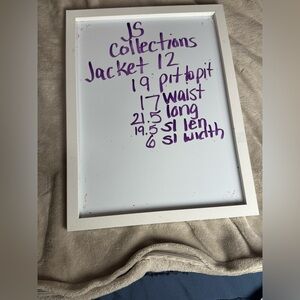 JS
Collections
Jacket 12
19 pit to pit
17 waist
21.5 long
19.5 sl len
6 sl width